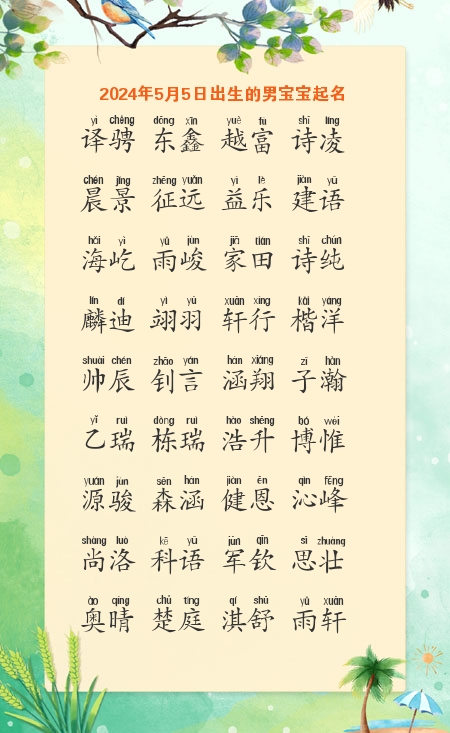 2024年5月5日出生的男宝宝起名
yì chěng dōng xīn yuè fù shī líng
译骋 东鑫 越富 诗凌
chén jǐng zhēng yuǎn yì lè jiàn yǔ
晨景 征远 益乐 建语
hǎi yì yǔ jùn jiā tián shī chún
海屹 雨峻 家田 诗纯
lín dí yì yǔ xuān xíng kǎi yáng
麟迪 翊羽 轩行 楷洋
shuài chén zhāo yán hán xiáng zǐ hàn
帅辰 钊言 涵翔 子瀚
yǐ ruì dòng ruì hào shēng bó wéi
乙瑞 栋瑞 浩升 博惟
yuán jùn sēn hán jiàn ēn qìn fēng
源骏 森涵 健恩 沁峰
shàng luò kē yǔ jūn qīn sī zhuàng
尚洛 科语 军钦 思壮
ào qíng chǔ tíng qí shū yǔ xuān
奥晴 楚庭 淇舒 雨轩